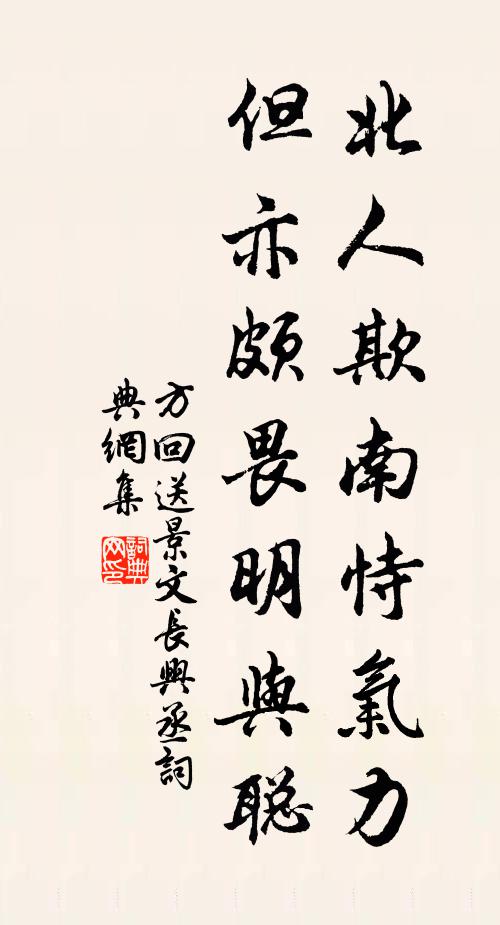 北人欺南恃氣力
但亦頗畏明與聰
方回送景文長興丞詞
典網集
詞典
网印